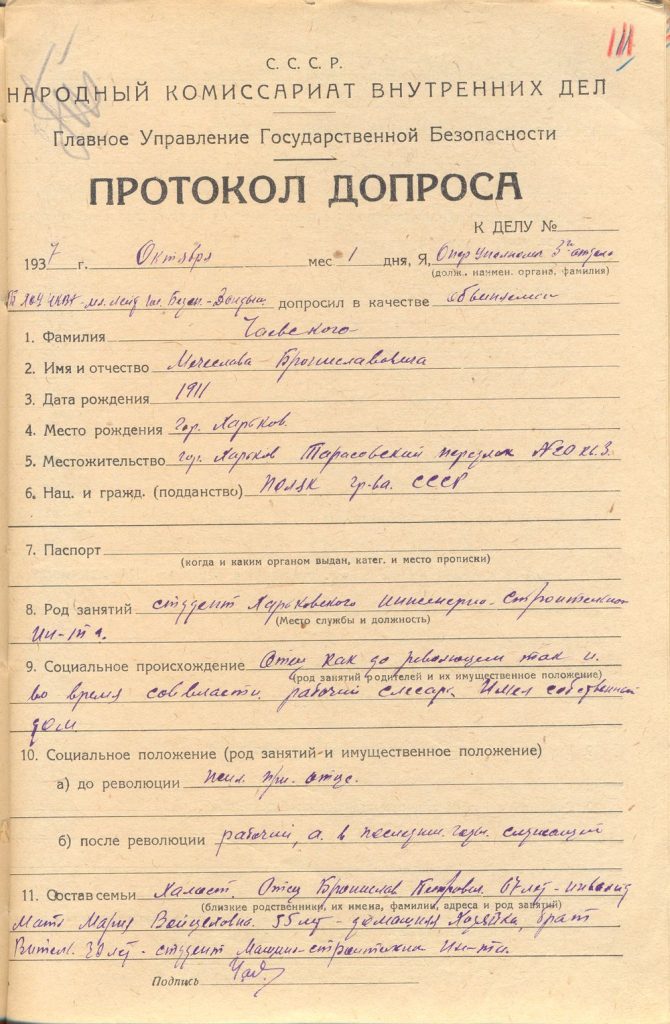 С. С. С. Р.
НАРОДНЫЙ КОМИССАРИАТ ВНУТРЕННИХ ДЕЛ
Главное Управление Государственной Безопасности
ПРОТОКОЛ ДОПРОСА
К ДЕЛУ №
1937 г. Октября мес 1 дня, Я, Опер уполномоч 3го отдела
(долж., наимен. органа, фамилия)
мл. лейт гос. Безоп. допросил в качестве обвиняемого
1. Фамилия Чаевского
2. Имя и отчество Мечеслава Брониславовича
3. Дата рождения 1911
4. Место рождения гор. Харьков.
5. Местожительство гор. Харьков Тарасовский переулок №20 кв. 3.
6. Нац. и гражд. (подданство) поляк гр-ва. СССР
7. Паспорт
(когда и каким органом выдан, катег. и место прописки)
8. Род занятий студент Харьковского инженерно-строительного
(Место службы и должность)
ин-та.
9. Социальное происхождение Отец как до революции так и
(род занятий родителей и их имущественное положение)
во время соввласти. рабочий слесарь. Имел собственный
дом.
10. Социальное положение (род занятий и имущественное положение)
а) до революции жил при отце.
б) после революции рабочий, а в последние годы служащий
11. Состав семьи Холост. Отец Бронислав Петрович 67 лет - инвалид
(близкие родственники, их имена, фамилии, адреса и род занятий)
Мать Мария Войцеховна. 55 лет - домашняя хозяйка, брат
лет - студент Машино-строительн ин-та.
Подпись